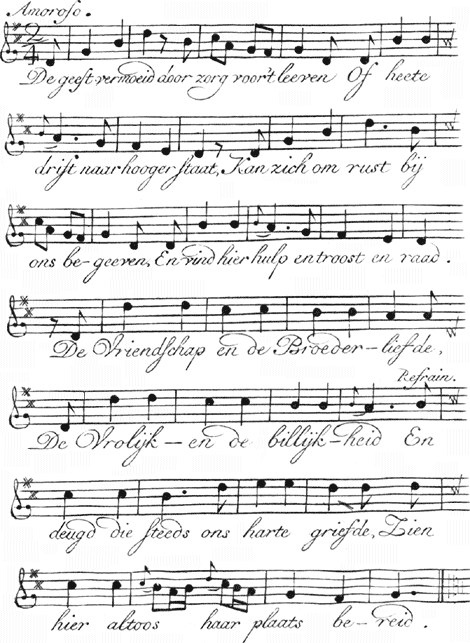 Amoroso.
2
4
De geest vermoeid door zorg voor't leeven Of heete
drift naar hooger staat, Kan zich om rust bij
ons be-geeven, En vind hier hulp en troost en raad.
De Vriendschap en de Broeder-liefde,
Refrain.
De Vrolijk-en de billijk-heid En
deugd die steeds ons harte griefde, Zien
hier altoos haar plaats be-reid.